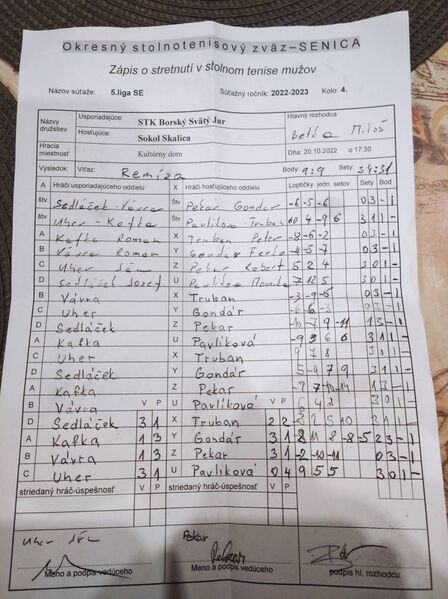 Okresný stolnotenisový zväz–SENICA
Zápis o stretnutí v stolnom tenise mužov
Názov súťaže: 5.liga SE Súťažný ročník: 2022-2023 Kolo: 4.
Názvy družstiev Usporiadajúce: STK Borský Svätý Jur Hlavný rozhodca
Hosťujúce: Sokol Skalica Miloš
Hracia miestnosť Kultúrny dom Dňa: 20.10.2022 o 17:30
Výsledok: Víťaz: Remíza Body 9:9 Sety: 34:31
A Hráči usporiadajúceho oddielu X Hráči hosťujúceho oddielu Loptičky jedn. setov Sety Bod
štv Sedláček - Vávra štv Pekar Gondar -6 -5 -6 03 -1
štv Uher - Kafka štv Pavlikova - Truban 4 -9 6 31 1-
A Kafka Roman X Truban Peter -8 -6 -2 03 -1
B Vávra Roman Y Gondar -4 -5 -7 03 -1
C Uher Ján Z Pekar Robert 5 2 4 30 1-
D Sedláček Jozef U Pavlikova 7 12 5 30 1-
B Vávra X Truban -3 -9 -5 03 -1
C Uher Y Gondár 03 -1
D Sedláček Z Pekar -10 -7 9 -11 13 -1
A Kafka U Pavlíková -9 3 6 6 31 1-
C Uher X Truban 9 7 8 30 1-
D Sedláček Y Gondár 5 -4 7 9 31 1-
A Kafka Z Pekar 13 -1
B Vávra V P U Pavlíková V P 6 4 8 30 1-
D Sedláček 3 1 X Truban 2 2 2 5 10 31 1-
A Kafka 1 3 Y Gondár 3 1 8 -8 -5 23 -1
B Vávra 1 3 Z Pekar 3 1 -2 -10 -11 03 -1
C Uher 3 1 U Pavlíková 0 4 9 5 5 30 1-
striedaný hráč-úspešnosť V P striedaný hráč-úspešnosť V P
Uher Ján Pekar
Meno a podpis vedúceho Meno a podpis vedúceho podpis hl. rozhodcu